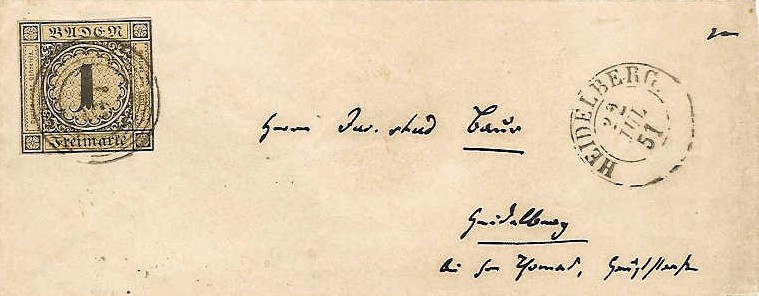 BADEN
1
Freimarke
HEIDELBERG.
22
JUL
51
Herrn Jur. stud Baur
Heidelberg
bei Hrn Thomas, Hauptstraße